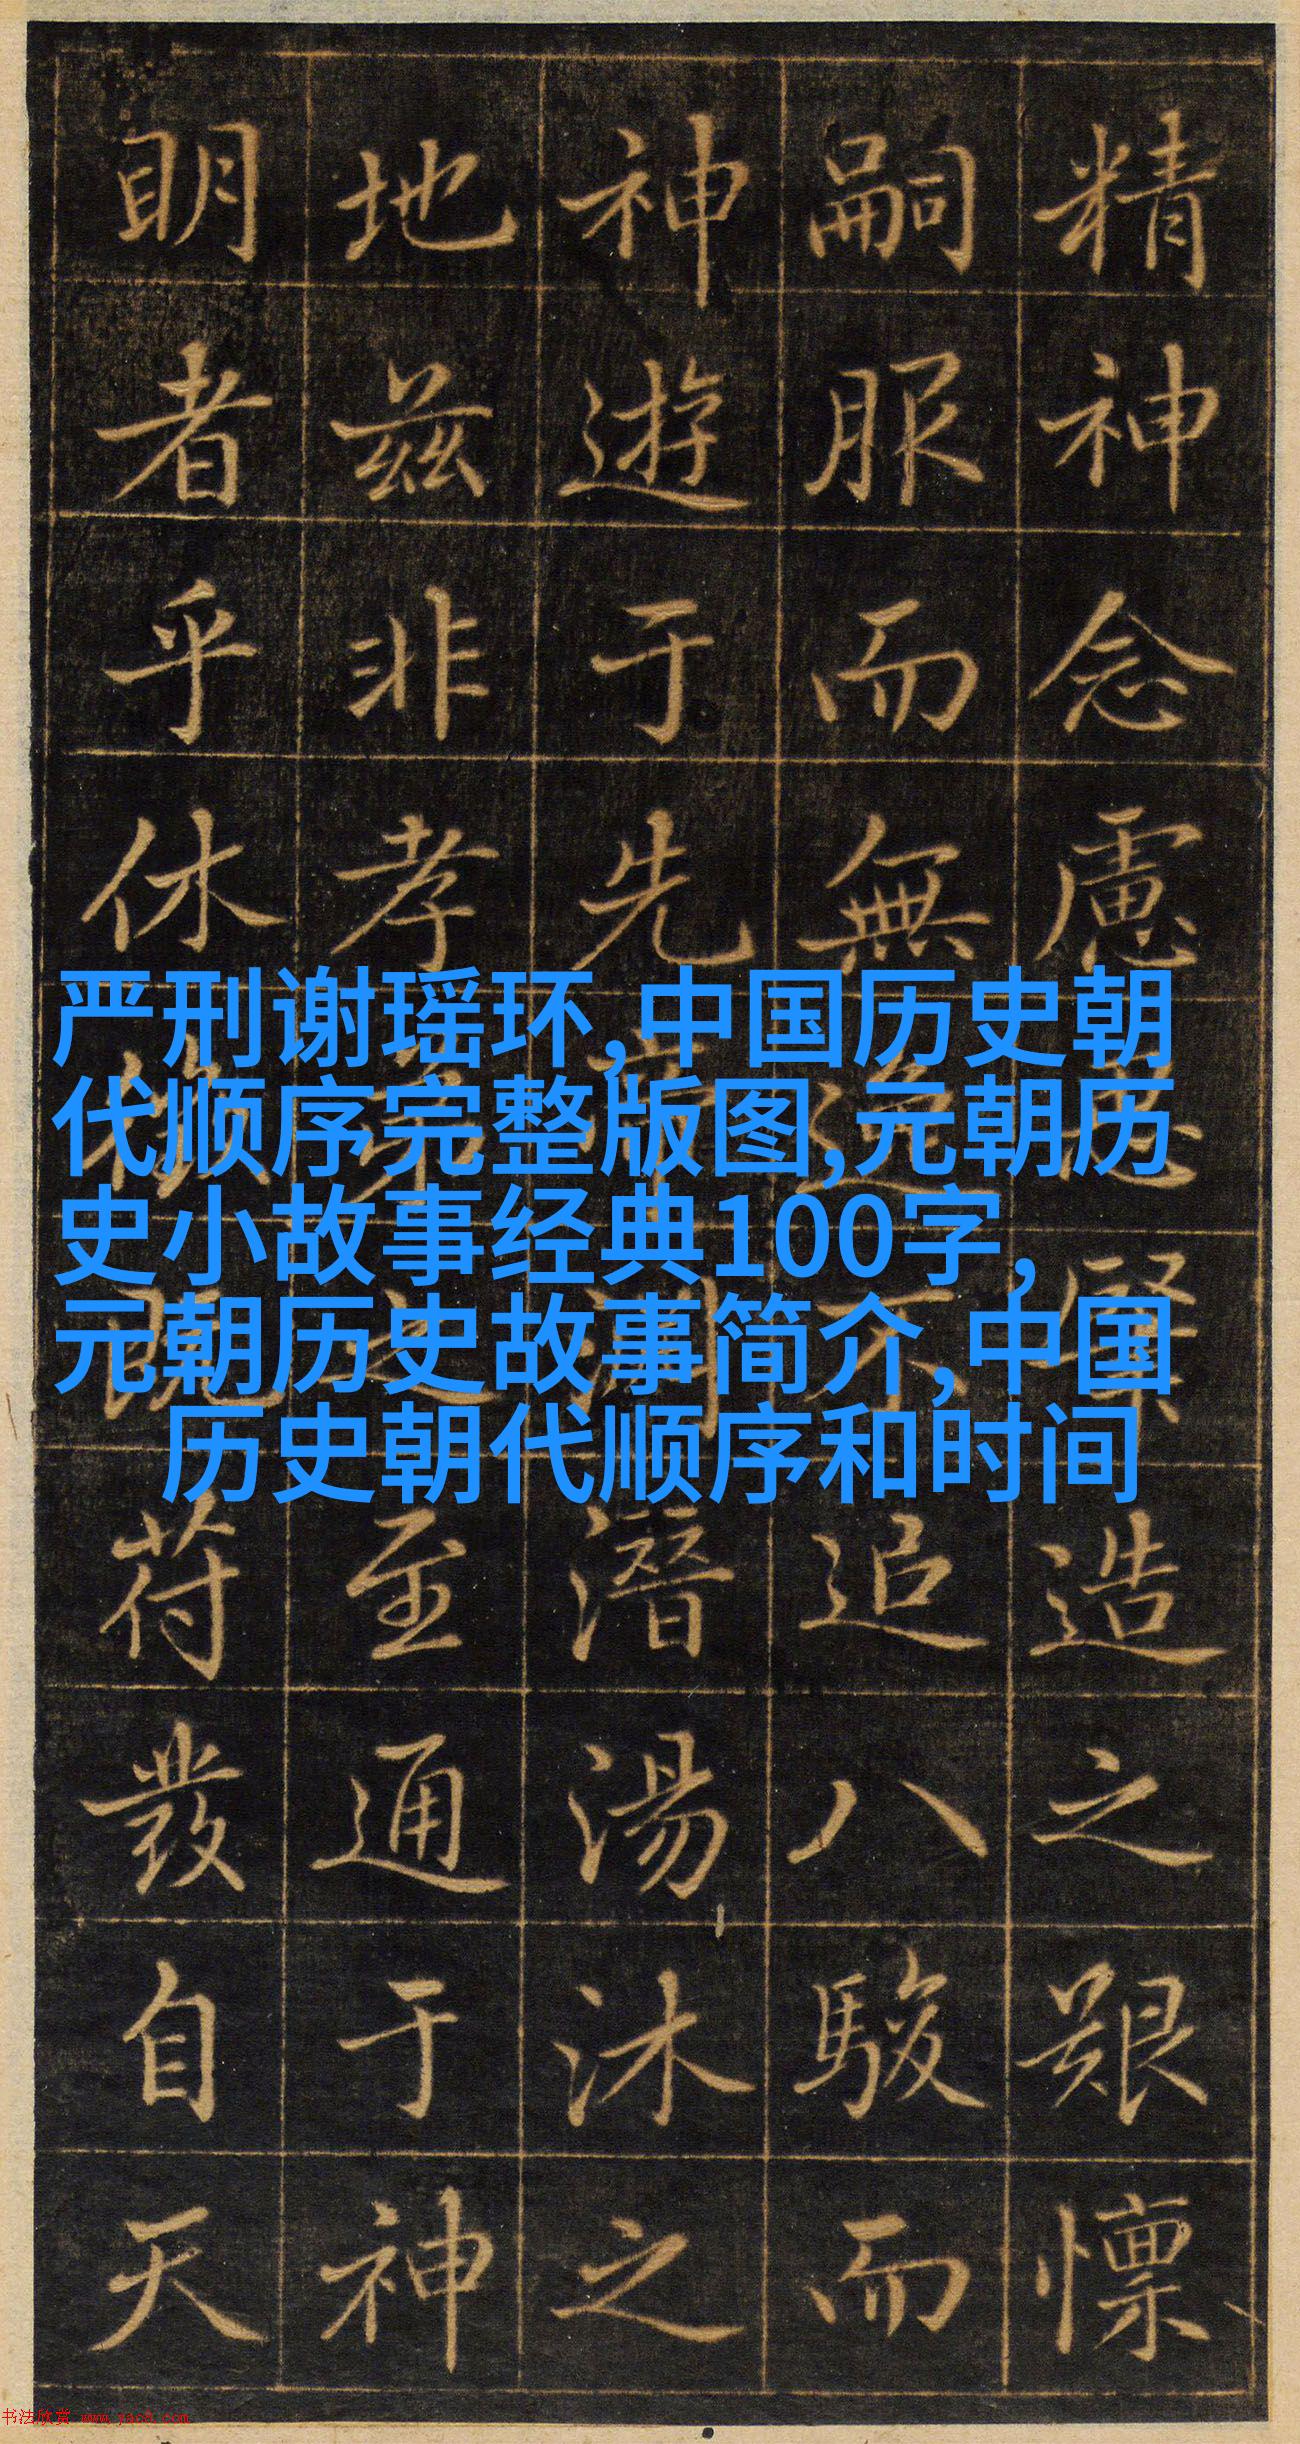 精神念慮造之艱懍
嗣服而無不追八駿而
神遊于先潛湯沐之
地兹非孝之至通于神
明者乎休既苻發自天
严刑谢瑶环,中国历史朝
代顺序完整版图,元朝历
史小故事经典100字，
元朝历史故事简介,中国
历史朝代顺序和时间
书法欣赏 www.yac8.com